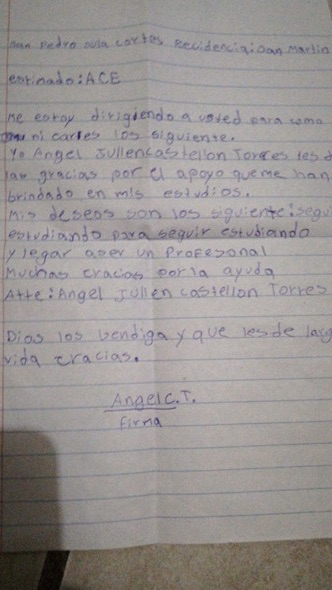 San Pedro Sula cortes Recidencia: San Martin
estimado: ACE
Me estoy dirigiendo a usted para como
ni cartes los siguiente.
Yo Angel JullenCastellon Torres les d
lan gracias por el apoyo que me han
brindado en mis estudios.
Mis deseos son los siguiente: segui
estudiando para seguir estudiando
y legar aser un Profesonal
Muchas cracias por la ayuda
Atte: Angel Jullen castellon Torres
Dios los bendiga y que les de larg
vida cracias.
Angel C. T.
Firma